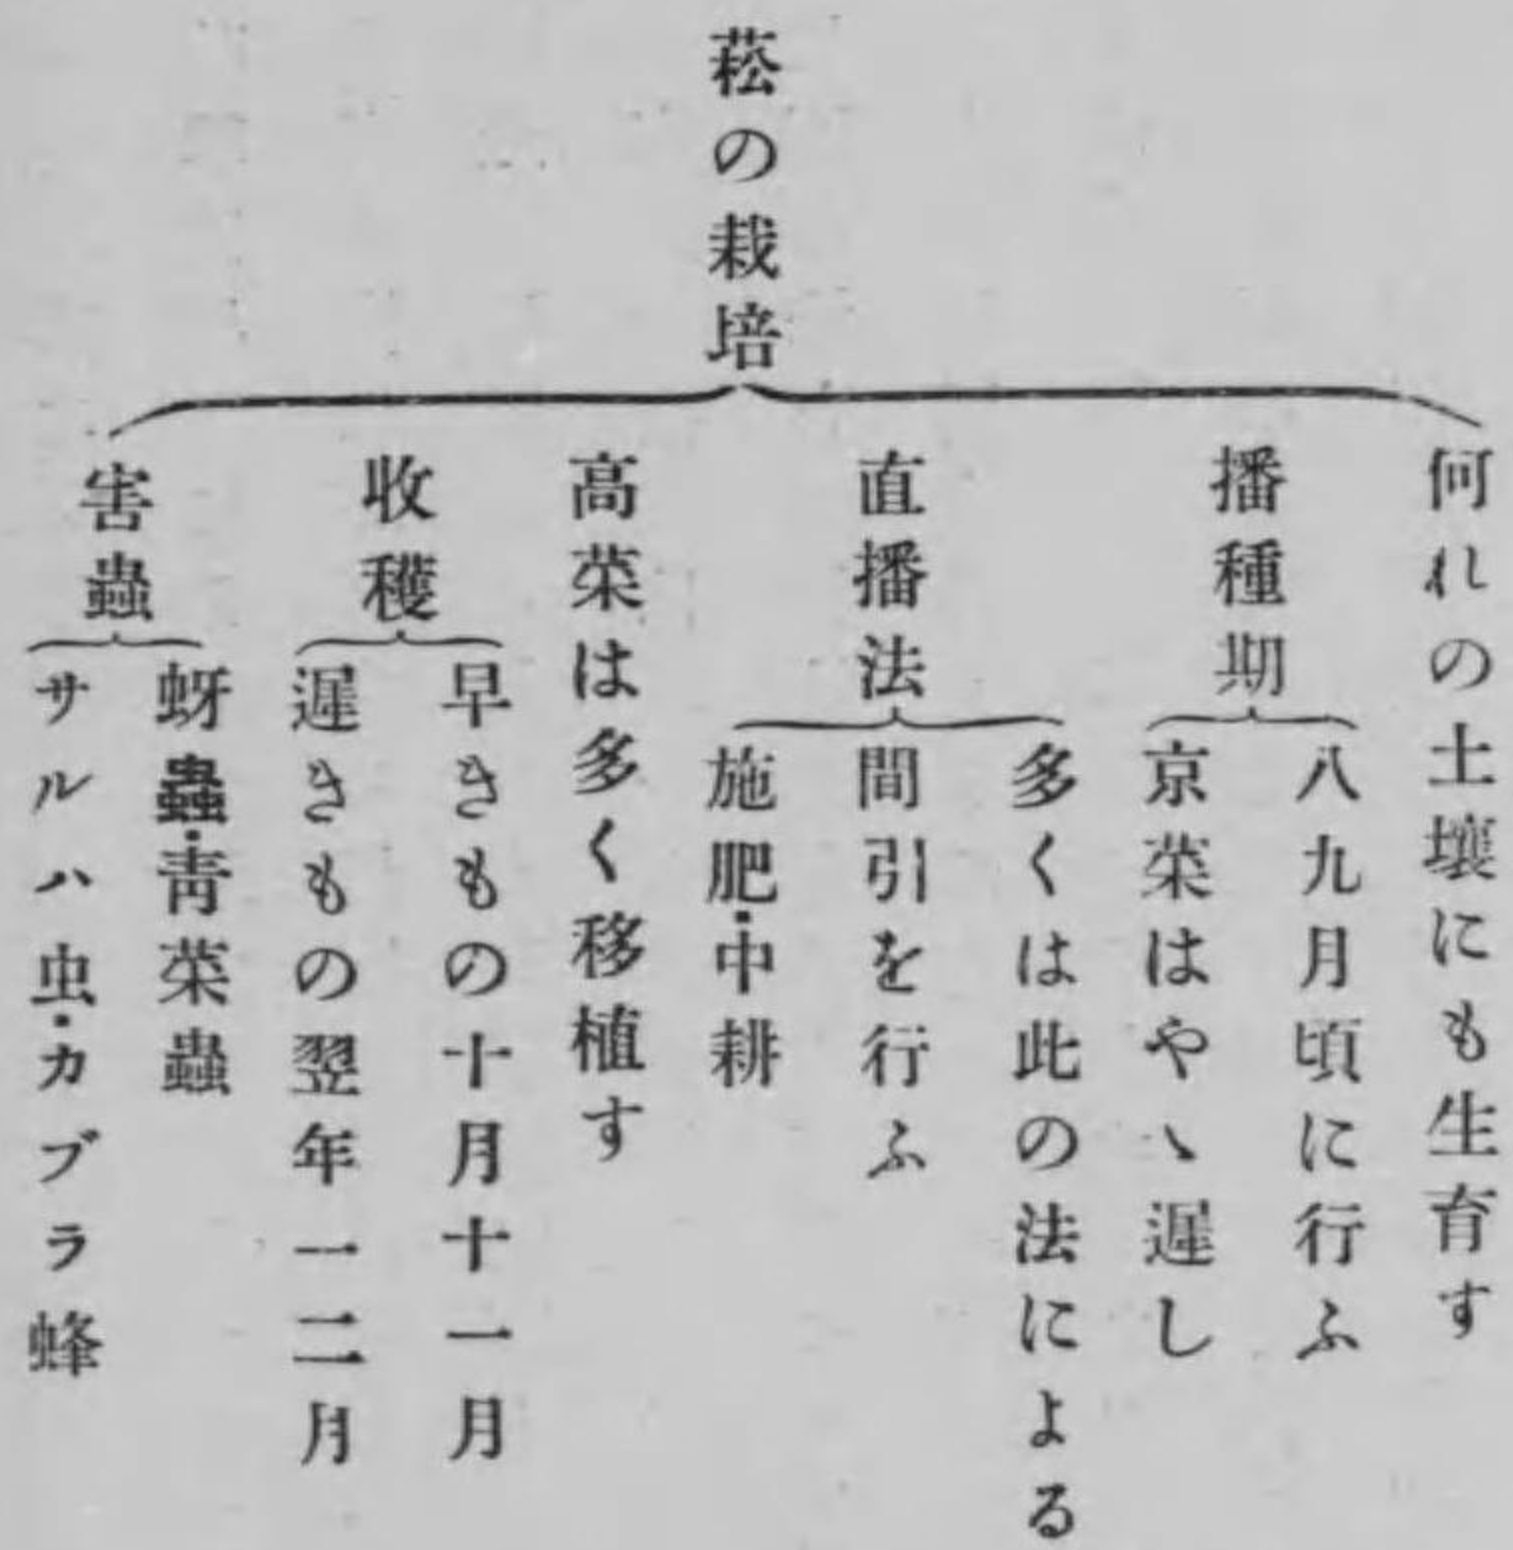 菘の栽培
何れの土壤にも生育す
播種期
八九月頃に行ふ
京菜はやゝ遲し
直播法
多くは此の法による
間引を行ふ
施肥・中耕
高菜は多く移植す
收穫
早きもの十月十一月
遲きもの翌年一二月
害蟲
蚜蟲・靑菜蟲
サルハ虫・カブラ蜂